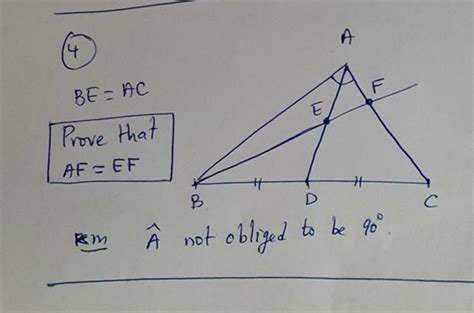 4
BE = AC
Prove that
AF = EF
A
F
E
B
D
C
Rem Â not obliged to be 90°.